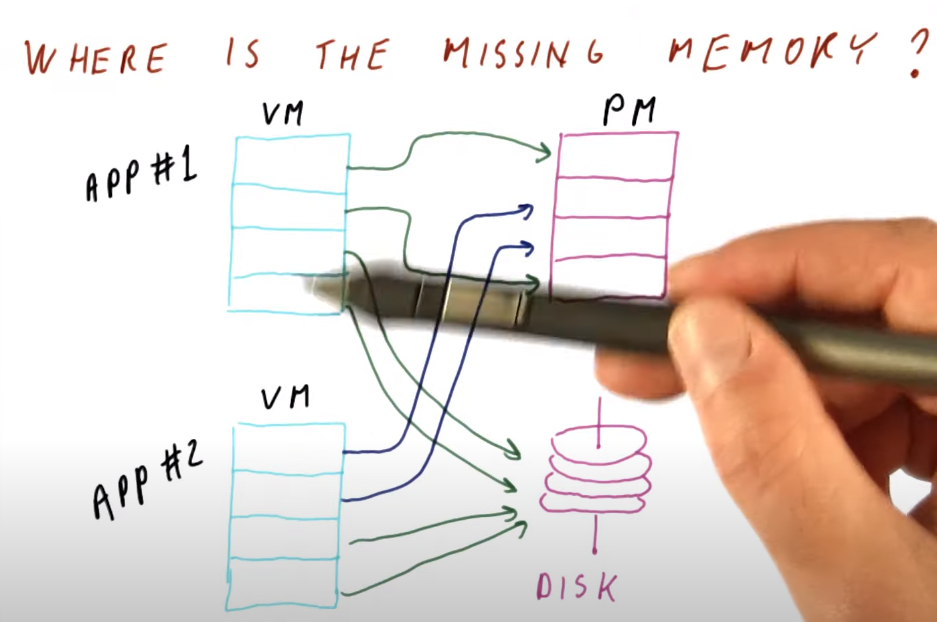 WHERE IS THE MISSING MEMORY?
VM
PM
APP #1
VM
APP #2
DISK